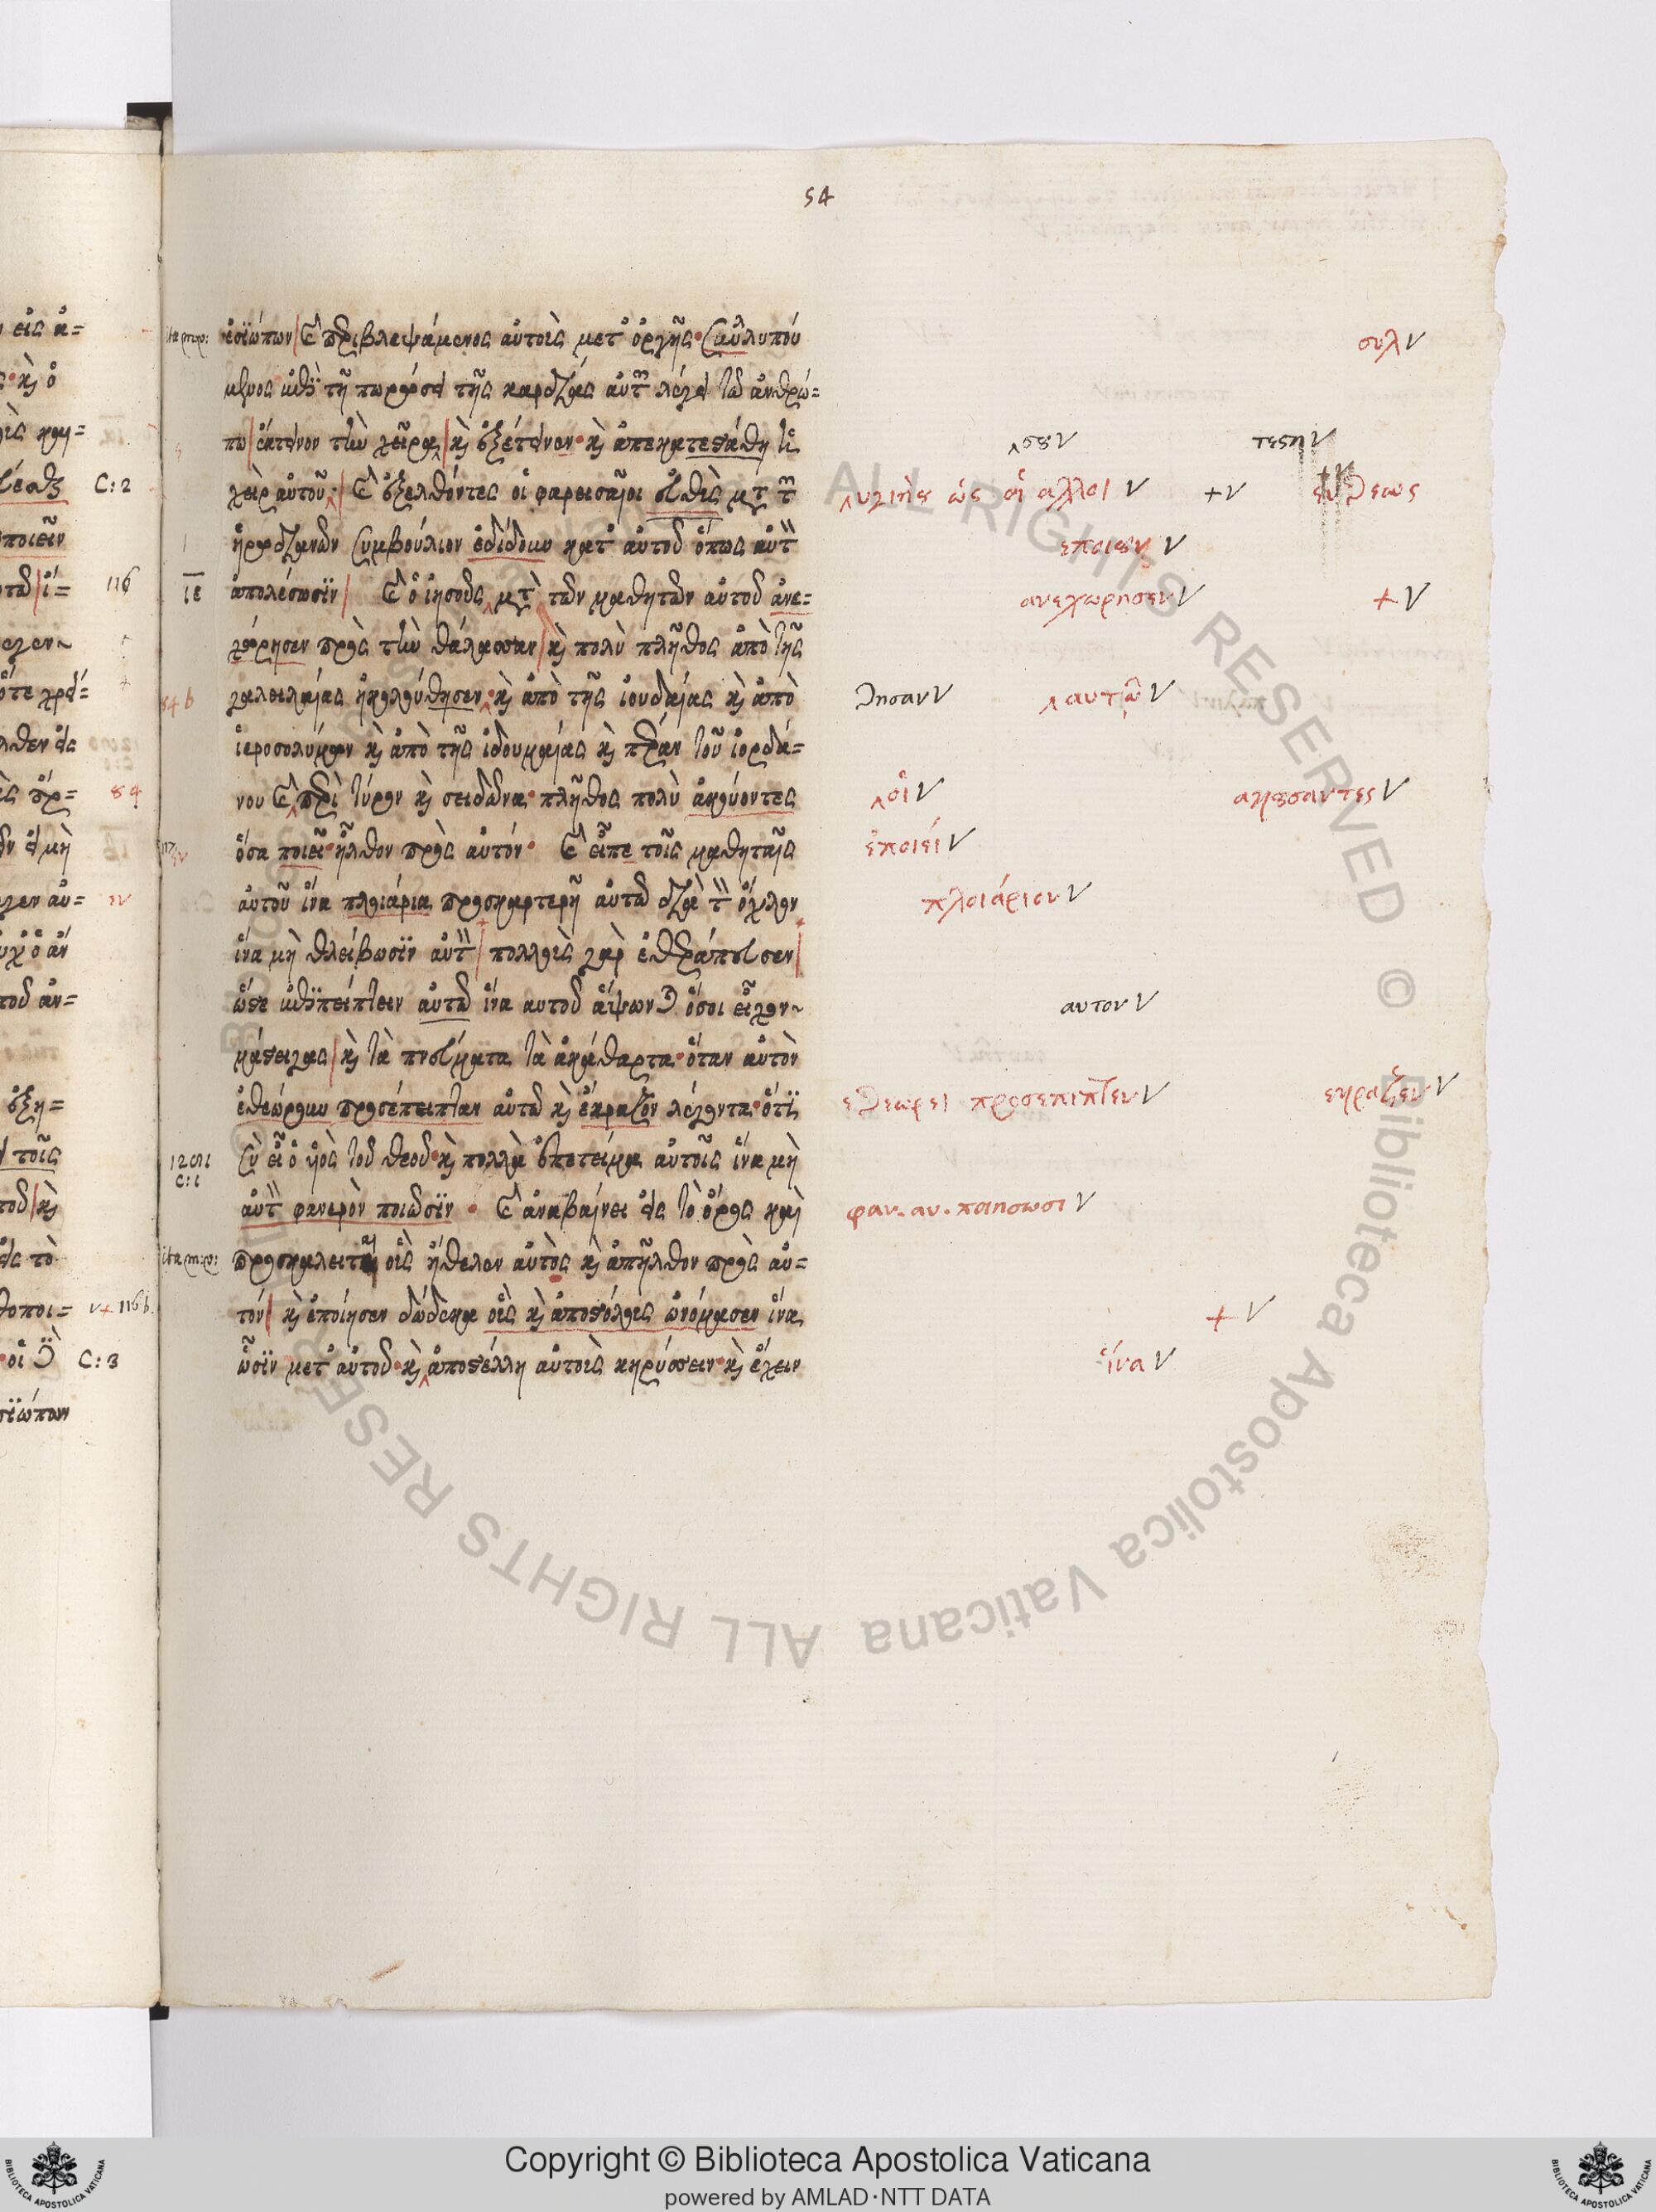 54
ἐσϊώπων καὶ περιβλεψάμενος αὐτοὺς μετ᾽ ὀργῆς συλλυπού
μενος ἐπὶ τῇ πωρώσει τῆς καρδίας αὐτῶν λέγει τῷ ἀνθρώ=
πω ἔκτεινον τὴν χεῖρα καὶ ἐξέτεινεν καὶ ἀπεκατεστάθη ἡ
χεὶρ αὐτοῦ· καὶ ἐξελθόντες οἱ φαρεισαῖοι εὐθὺς μετὰ τῶν
ἡρωδιανῶν συμβούλιον ἐδίδουν κατ᾽ αὐτοῦ ὅπως αὐτὸν
ιε ἀπολέσωσϊν καὶ ὁ ἰησοῦς μετὰ τῶν μαθητῶν αὐτοῦ ἀνε=
χώρησεν πρὸς τὴν θάλασσαν καὶ πολὺ πλῆθος ἀπὸ τῆς
γαλειλαίας ἠκολούθησεν καὶ ἀπὸ τῆς ἰουδαίας καὶ ἀπὸ
ἱεροσολύμων καὶ ἀπὸ τῆς ἰδουμαίας καὶ πέραν τοῦ ἰορδά=
νου καὶ περὶ τύρον καὶ σειδῶνα πλῆθος πολὺ ἀκούοντες
ὅσα ποιεῖ ἦλθον πρὸς αὐτόν· καὶ εἶπε τοῖς μαθηταῖς
αὐτοῦ ἵνα πλοιάρια προσκαρτερῇ αὐτῶ διὰ τὸν ὄχλον
ἵνα μὴ θλείβωσϊν αὐτὸν πολλοὺς γὰρ ἐθεράπευσεν
ὥστε ἐπιπείπτειν αὐτῶ ἵνα αυτοῦ ἅψωνται ὅσοι εἶχον~
μάστειγας καὶ τὰ πνεύματα τὰ ἀκάθαρτα ὅταν αὐτὸν
ἐθεώρουν προσέπειπταν αὐτῶ καὶ ἔκραζον λέγοντα ὅτϊ
σὺ εἶ ὁ υἱὸς τοῦ θεοῦ καὶ πολλὰ ἐπετείμα αὐτοῖς ἵνα μὴ
αὐτὸν φανερὸν ποιῶσϊν · καὶ ἀναβαίνει εἰς τὸ ὄρος καὶ
προσκαλεῖται οὓς ἤθελον αὐτὸς καὶ ἀπῆλθον πρὸς αὐ=
τόν καὶ ἐποίησεν δώδεκα οὓς καὶ ἀποστόλους ὠνόμασεν ἵνα
ὦσϊν μετ᾽ αὐτοῦ καὶ ἀποστέλλῃ αὐτοὺς κηρύσσειν καὶ ἔχειν
συλ V
σου V τεστη V
υγιὴς ὡς οἱ αλλοι V + V ευθεως
εποιουν V
ανεχωρησεν V + V
θησαν V αυτῷ V
οἱ V ακουσαντες V
ἐποιεί V
πλοιάριον V
αυτον V
εθεωρει προσεπιπτεν V εκραζεν V
φαν. αυ. ποιησωσι V
+ V
ἵνα V
C: 2
116
84
116b.
C: 3
84 b
C: 1
Copyright © Biblioteca Apostolica Vaticana
powered by AMLAD·NTT DATA
ALL RIGHTS RESERVED © Biblioteca Apostolica Vaticana ALL RIGHTS RESERVED